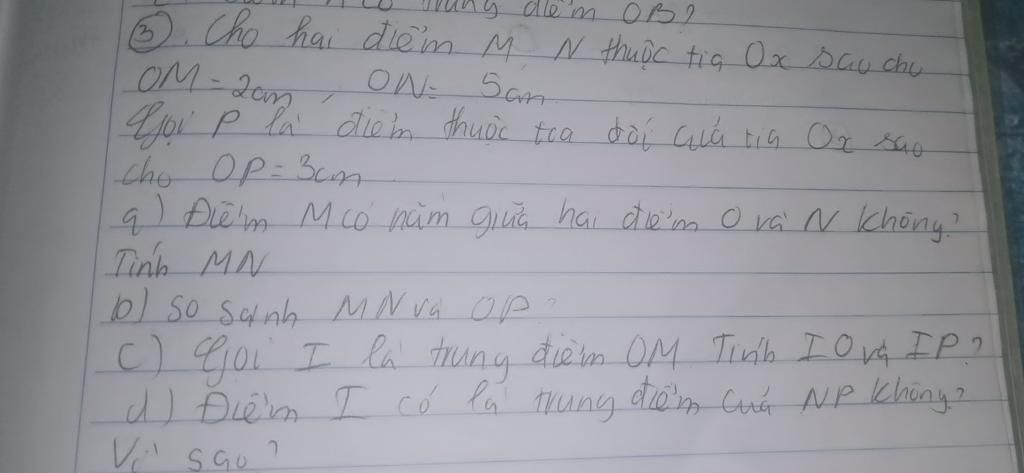 trung điểm OB?
③. Cho hai điểm M, N thuộc tia Ox sao cho
OM = 2cm, ON = 5cm
Gọi P là điểm thuộc tia đối của tia Ox sao
cho OP = 3cm
a) Điểm M có nằm giữa hai điểm O và N không?
Tính MN
b) so sánh MN và OP?
c) Gọi I là trung điểm OM Tính IO và IP?
d) Điểm I có là trung điểm của NP không?
Vì sao?